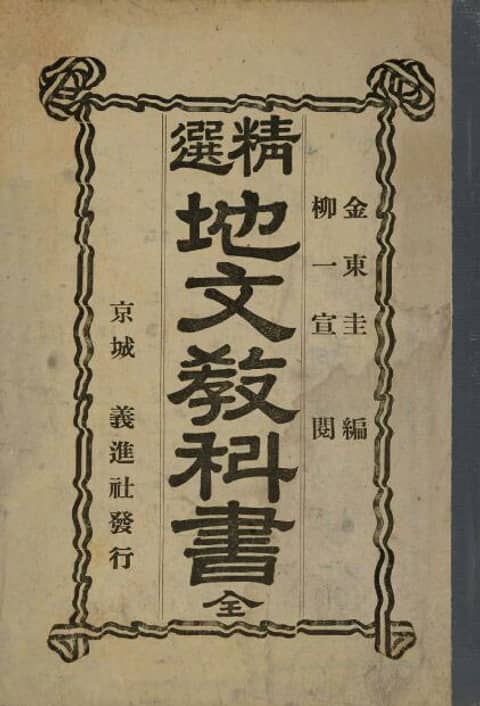 金東圭 編
柳一宣 閱
精選
地文教科書
全
京城 義進社發行